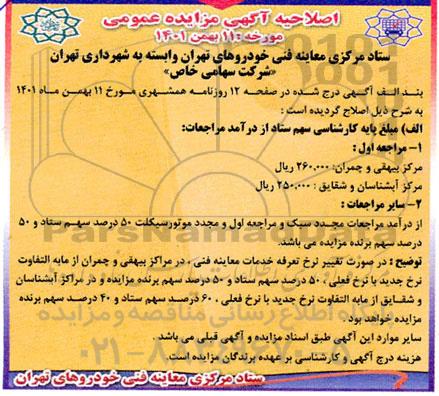 اصلاحیه آگهی مزایده عمومی
مورخه : ۱۱ بهمن ۱۴۰۱
ستاد مرکزی معاینه فنی خودروهای تهران وابسته به شهرداری تهران
«شرکت سهامی خاص»
بند الف آگهی درج شده در صفحه ۱۲ روزنامه همشهری مورخ ۱۱ بهمن ماه ۱۴۰۱
به شرح ذیل اصلاح گردیده است :
الف) مبلغ پایه کارشناسی سهم ستاد از درآمد مراجعات:
۱- مراجعه اول :
مرکز بیهقی و چمران: ۲۶۰,۰۰۰ ریال
مرکز آبشناسان و شقایق : ۲۵۰,۰۰۰ ریال
۲- سایر مراجعات :
از درآمد مراجعات مجدد سبک و مراجعه اول و مجدد موتورسیکلت ۵۰ درصد سهم ستاد و ۵۰
درصد سهم برنده مزایده می باشد.
توضیح : در صورت تغییر نرخ تعرفه خدمات معاینه فنی ، در مراکز بیهقی و چمران از مابه التفاوت
نرخ جدید با نرخ فعلی ، ۵۰ درصد سهم ستاد و ۵۰ درصد سهم برنده مزایده و در مراکز آبشناسان
و شقایق از مابه التفاوت نرخ جدید با نرخ فعلی ، ۶۰ درصد سهم ستاد و ۴۰ درصد سهم برنده
مزایده خواهد بود .
سایر موارد این آگهی طبق اسناد مزایده و آگهی قبلی می باشد .
هزینه درج آگهی و کارشناسی بر عهده برندگان مزایده است.
ستاد مرکزی معاینه فنی خودروهای تهران